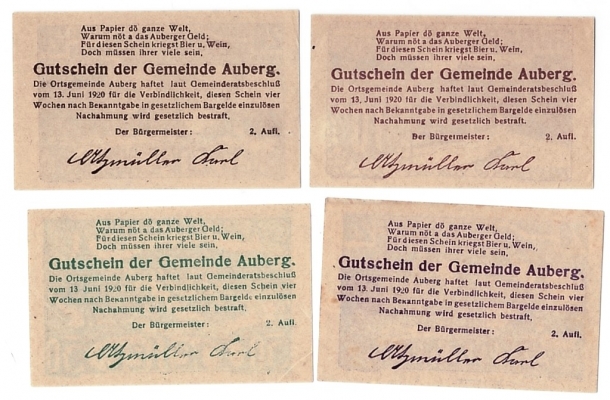 Aus Papier dö ganze Welt,
Warum nöt a das Auberger Geld;
Für diesen Schein kriegst Bier u. Wein,
Doch müssen ihrer viele sein,
Gutschein der Gemeinde Auberg.
Die Ortsgemeinde Auberg haftet laut Gemeinderatsbeschluß
vom 13. Juni 1920 für die Verbindlichkeit, diesen Schein vier
Wochen nach Bekanntgabe in gesetzlichem Bargelde einzulösen
Nachahmung wird gesetzlich bestraft.
Der Bürgermeister: 2. Aufl.
Atzmüller Karl
Aus Papier dö ganze Welt,
Warum nöt a das Auberger Geld;
Für diesen Schein kriegst Bier u. Wein,
Doch müssen ihrer viele sein,
Gutschein der Gemeinde Auberg.
Die Ortsgemeinde Auberg haftet laut Gemeinderatsbeschluß
vom 13. Juni 1920 für die Verbindlichkeit, diesen Schein vier
Wochen nach Bekanntgabe in gesetzlichem Bargelde einzulösen
Nachahmung wird gesetzlich bestraft.
Der Bürgermeister: 2. Aufl.
Atzmüller Karl
Aus Papier dö ganze Welt,
Warum nöt a das Auberger Geld;
Für diesen Schein kriegst Bier u. Wein,
Doch müssen ihrer viele sein,
Gutschein der Gemeinde Auberg.
Die Ortsgemeinde Auberg haftet laut Gemeinderatsbeschluß
vom 13. Juni 1920 für die Verbindlichkeit, diesen Schein vier
Wochen nach Bekanntgabe in gesetzlichem Bargelde einzulösen
Nachahmung wird gesetzlich bestraft,
Der Bürgermeister: 2. Aufl.
Atzmüller Karl
Aus Papier dö ganze Welt,
Warum nöt a das Auberger Geld;
Für diesen Schein kriegst Bier u. Wein,
Doch müssen ihrer viele sein,
Gutschein der Gemeinde Auberg.
Die Ortsgemeinde Auberg haftet laut Gemeinderatsbeschluß
vom 13. Juni 1920 für die Verbindlichkeit, diesen Schein vier
Wochen nach Bekanntgabe in gesetzlichem Bargelde einzulösen
Nachahmung wird gesetzlich bestraft,
Der Bürgermeister: 2. Aufl.
Atzmüller Karl